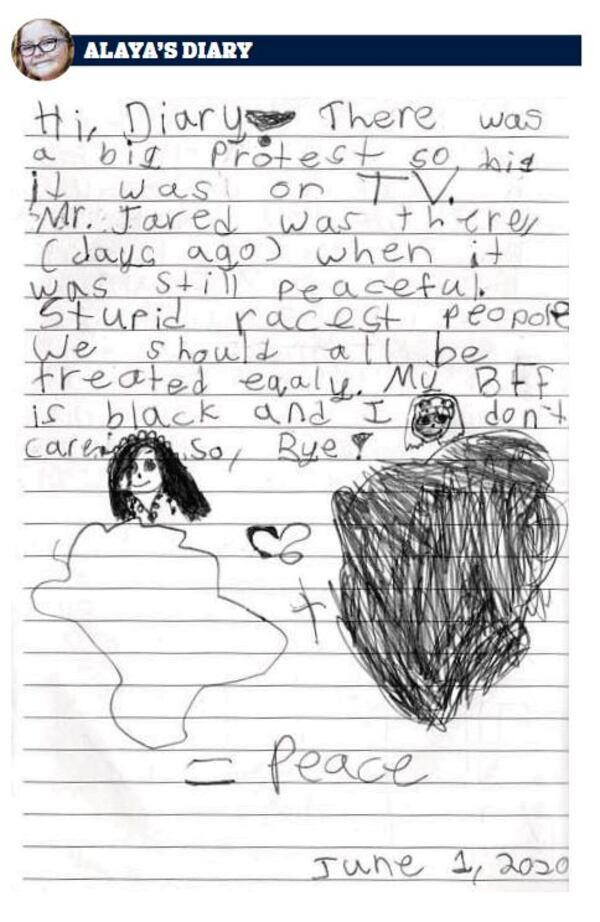 ALAYA'S DIARY
Hi, Diary There was
a big Protest so big
it was on TV.
Mr. Jared was there,
(days ago) when it
was still peaceful.
Stupid racest peopole
We should all be
treated eqaly. My BFF
is black and I don't
care. So, Bye!
+
= Peace
June 1, 2020